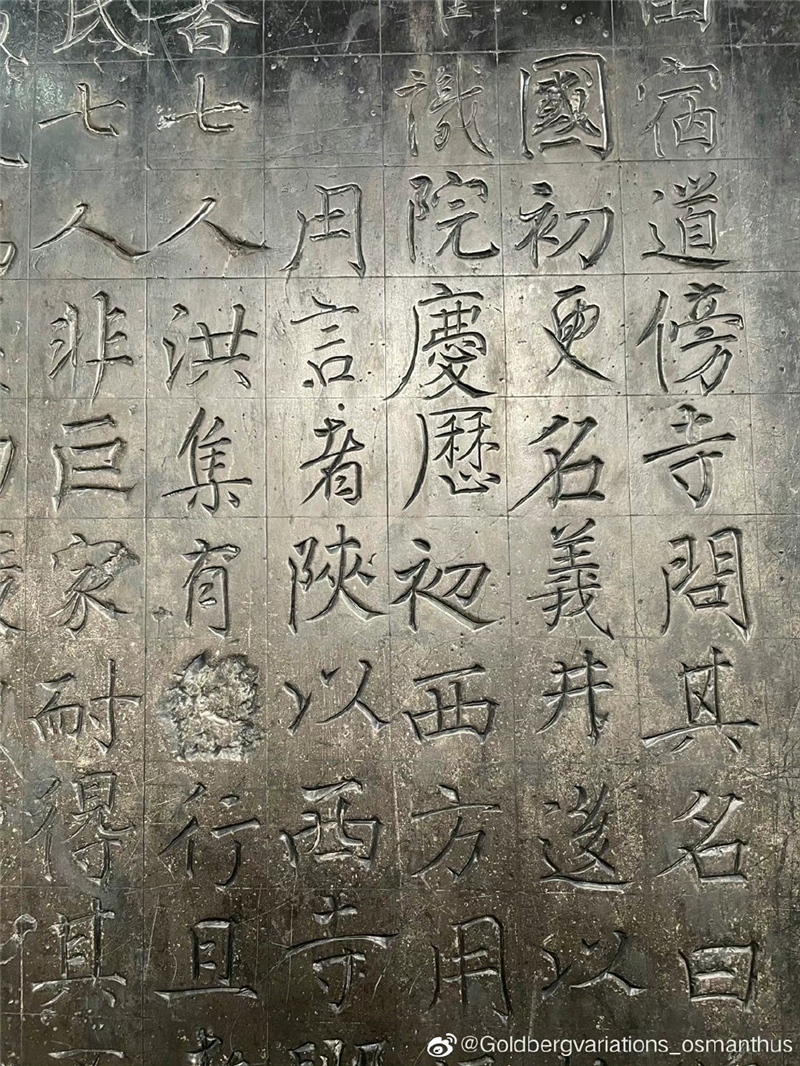 宿道傍寺問其名曰
國初更名義井遂以
識院慶曆初西方用
用言者陝以西寺
香七人洪集有行且
氏七人非巨家耐得其
@Goldbergvariations_osmanthus